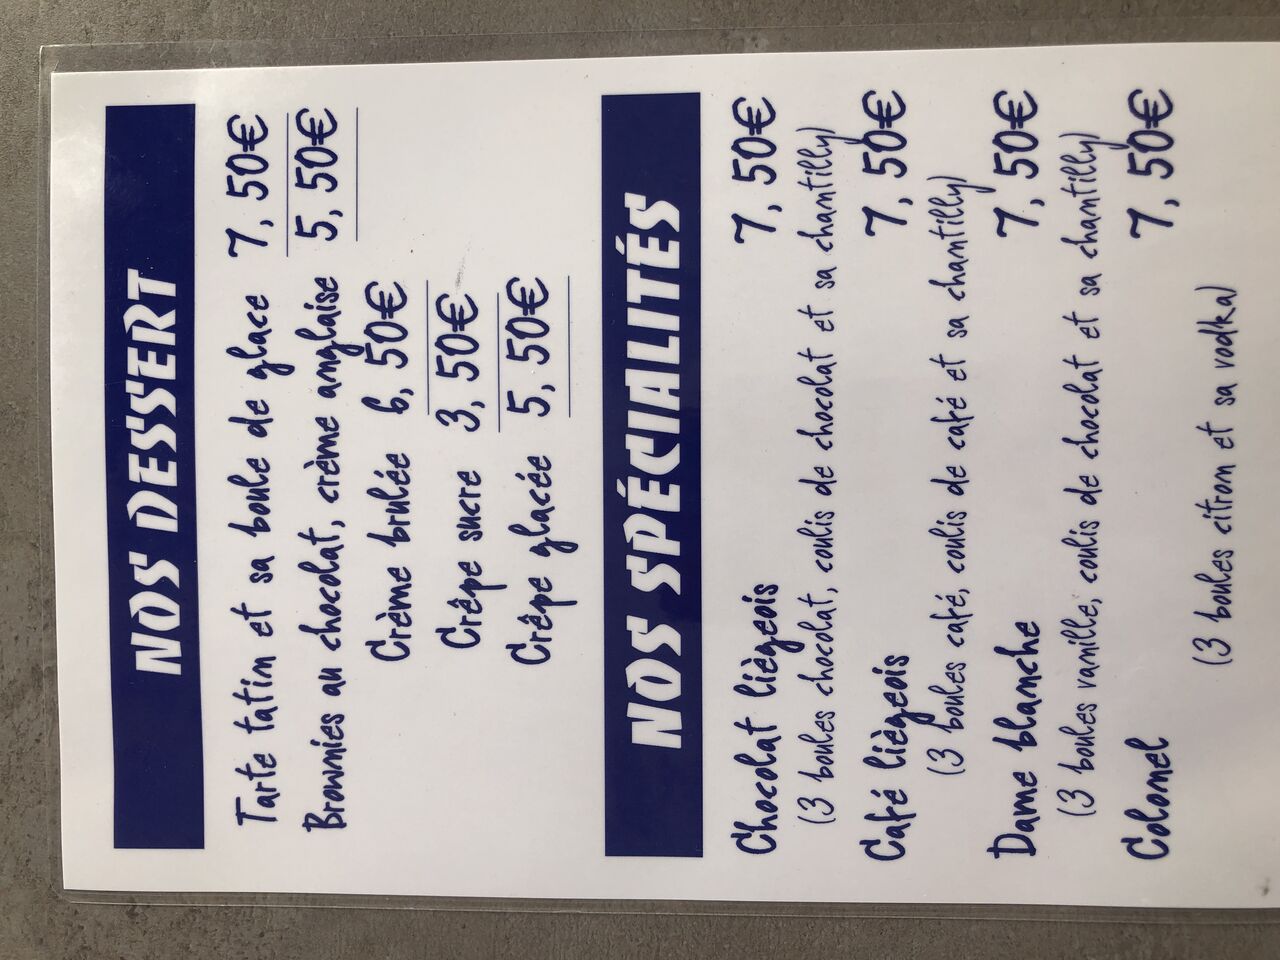 NOS DESSERT
Tarte tatin et sa boule de glace 7, 50€
Brownies au chocolat, crème anglaise 5, 50€
Crème brulée 6, 50€
Crêpe sucre 3, 50€
Crêpe glacée 5, 50€
NOS SPÉCIALITÉS
Chocolat liègeois 7, 50€
(3 boules chocolat, coulis de chocolat et sa chantilly)
Café liègeois 7, 50€
(3 boules café, coulis de café et sa chantilly)
Dame blanche 7, 50€
(3 boules vanille, coulis de chocolat et sa chantilly)
Colonel 7, 50€
(3 boules citron et sa vodka)